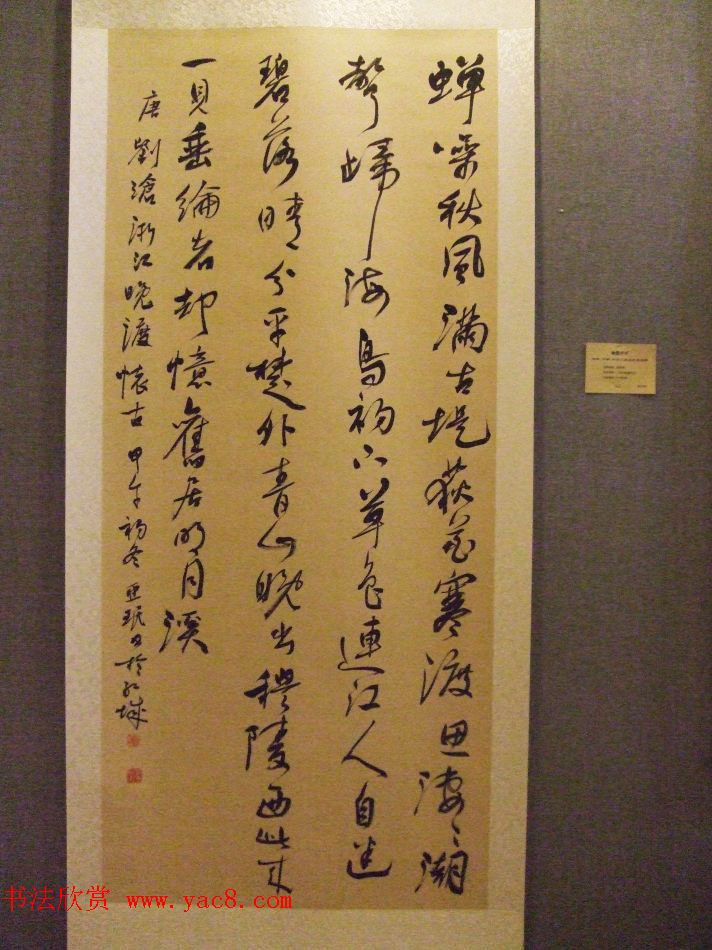 蝉噪秋風滿古堤荻花寒渡思淒〻潮
聲歸海鳥初下草色連江人自迷
碧落晴分平楚外青山晚出穆陵西此來
一見垂綸者却憶舊居明月溪
唐劉滄浙江晚渡懷古 甲午初冬 亞珉 於 城
书法欣赏 www.yac8.com